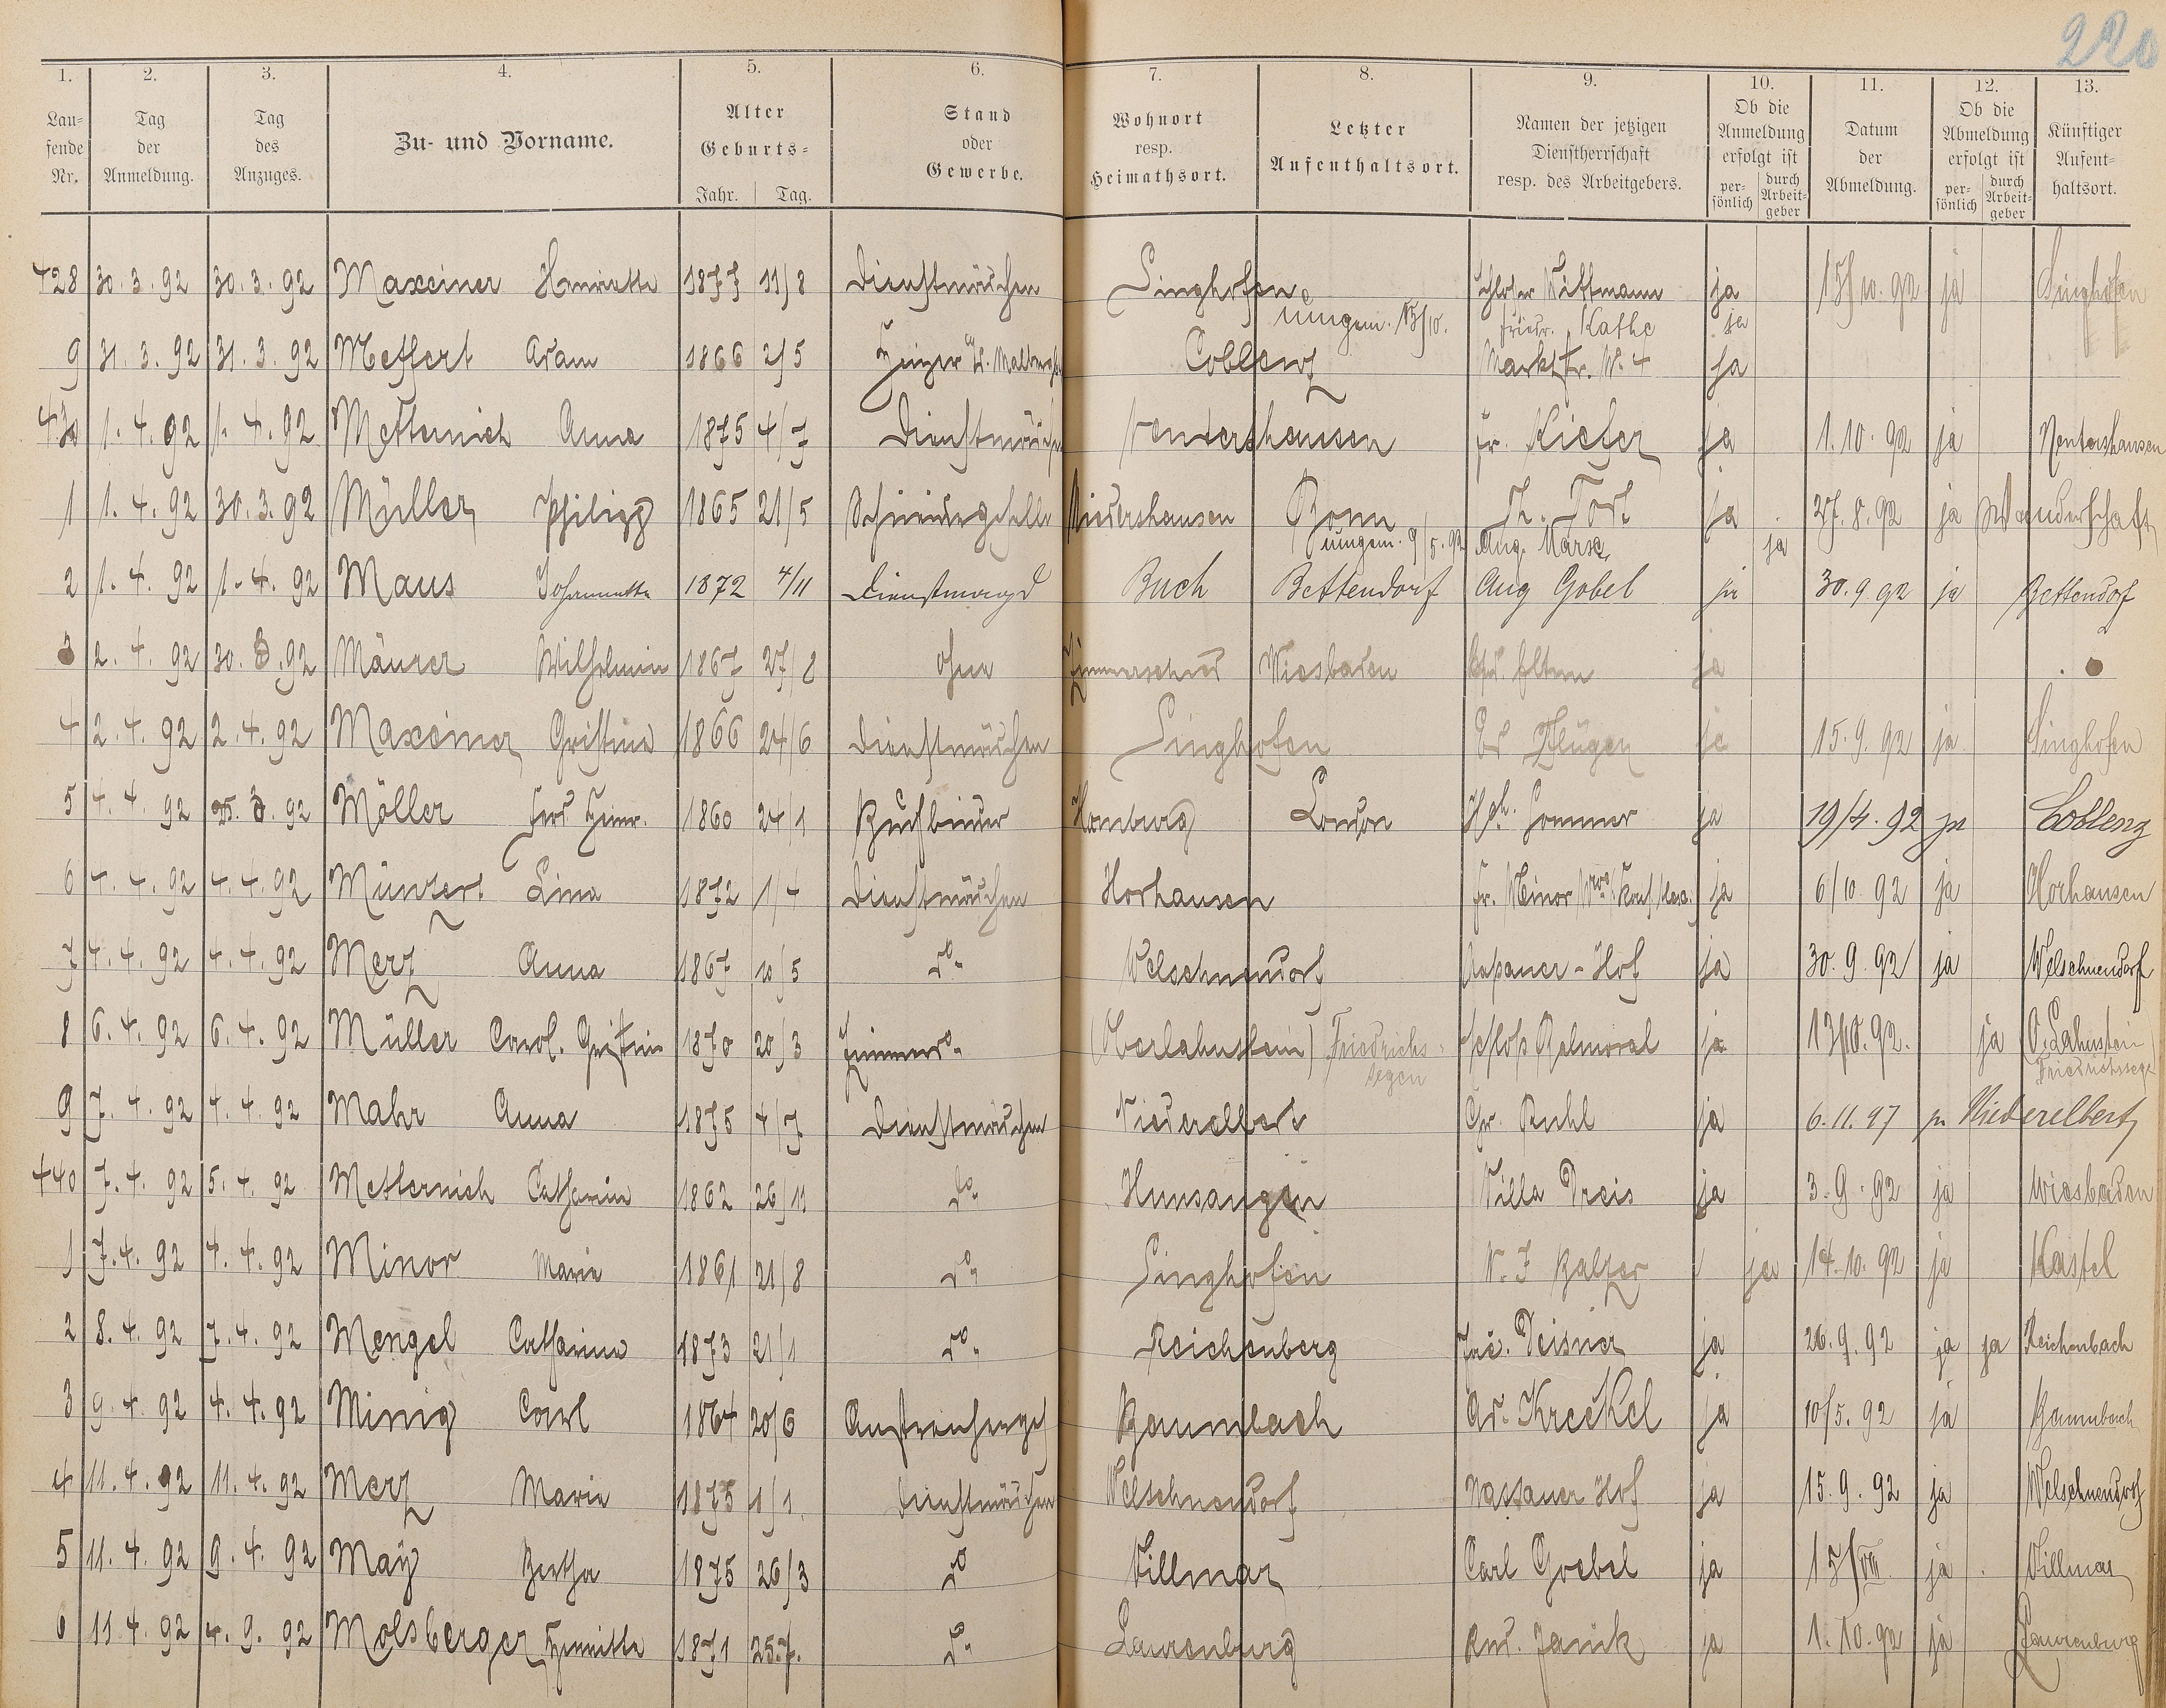 220
1. 2. 3. 4. 5. 6. 7. 8. 9. 10. 11. 12. 13.
Laufende Nr. Tag der Anmeldung. Tag des Anzuges. Zu- und Vorname. Alter Geburts- Jahr. Tag. Stand oder Gewerbe. Wohnort resp. Heimathsort. Letzter Aufenthaltsort. Namen der jetzigen Dienstherrschaft resp. des Arbeitgebers. Ob die Anmeldung erfolgt ist persönlich durch Arbeitgeber Datum der Abmeldung. Ob die Abmeldung erfolgt ist persönlich durch Arbeitgeber Künftiger Aufenthaltsort.
428 30.3.92 30.3.92 Maxeiner Henriette 1877 11/8 Dienstmädchen Singhofen Schloser Wittmann ja 15/10.92 ja Singhofen
umgem. 15/10. Friedr. Kathe ja
9 31.3.92 31.3.92 Meffert Adam 1866 2/5 Coblenz Marktstr. No. 4 ja
430 1.4.92 1.4.92 Metternich Anna 1875 4/7 Dienstmädchen Nentershausen Fr. Kiefer ja 1.10.92 ja Nentershausen
1 1.4.92 30.3.92 Müller Philipp 1865 21/5 Schmiedegeselle Niedershausen Bonn Th. Törl ja 27.8.92 ja Wanderschaft
umgem. 9/5.92 Aug. Marx ja
2 1.4.92 1.4.92 Maus Johannette 1872 4/11 Dienstmagd Buch Bettendorf Aug Göbel ja 30.9.92 ja Bettendorf
3 2.4.92 30.3.92 Mäurer Wilhelmin 1867 27/8 ohne Zimmerschied Wiesbaden Eltern ja
4 2.4.92 2.4.92 Maxeiner Christine 1866 24/6 Dienstmädchen Singhofen Ed Pflüger ja 15.9.92 ja Singhofen
5 4.4.92 25.3.92 Möller Ferd Heinr. 1860 24/1 Buchbinder Homburg London Hch. Sommer ja 19/4.92 ja Coblenz
6 4.4.92 4.4.92 Münzert Lina 1872 1/4 Dienstmädchen Horhausen Fr. Meinor ja 6/10.92 ja Horhausen
7 4.4.92 4.4.92 Merz Anna 1867 10/5 do. Welschneudorf Nassauer-Hof ja 30.9.92 ja Welschneudorf
8 6.4.92 6.4.92 Müller Carol. Christine 1870 20/3 Zimmerdo. (Oberlahnstein) Friedrichssegen Schloß Balmoral ja 13/10.92. ja O.Lahnstein Friedrichssegen
9 7.4.92 4.4.92 Mahr Anna 1875 4/7 Dienstmädchen Niederelbert Chr. Ruhl ja 6.11.97 ja Niederelbert
440 7.4.92 5.4.92 Metternich Catharine 1862 26/11 do. Hunsangen Villa Dreis ja 3.9.92 ja Wiesbaden
1 7.4.92 4.4.92 Minor Marie 1861 21/8 do. Singhofen N. J Balzer / ja 14.10.92 ja Kastel
2 8.4.92 7.4.92 Mengel Catharine 1873 21/1 do. Reichenberg Jac. Deisner ja 26.9.92 ja ja Reichenbach
3 9.4.92 4.4.92 Minig Carl 1864 20/6 Anstreicherges Baumbach Ad. Krekel ja 10/5.92 ja Baumbach
4 11.4.92 11.4.92 Merz Marie 1875 1/1. Dienstmädchen Welschneudorf Nassauer Hof ja 15.9.92 ja Welschneudorf
5 11.4.92 9.4.92 May Bertha 1875 26/3 do Villmar Carl Goebel ja 15/VIII ja Villmar
6 11.4.92 4.9.92 Molsberger Henriette 1871 25.7. do. Laurenburg Rud. Janik ja 1.10.92 ja Laurenburg